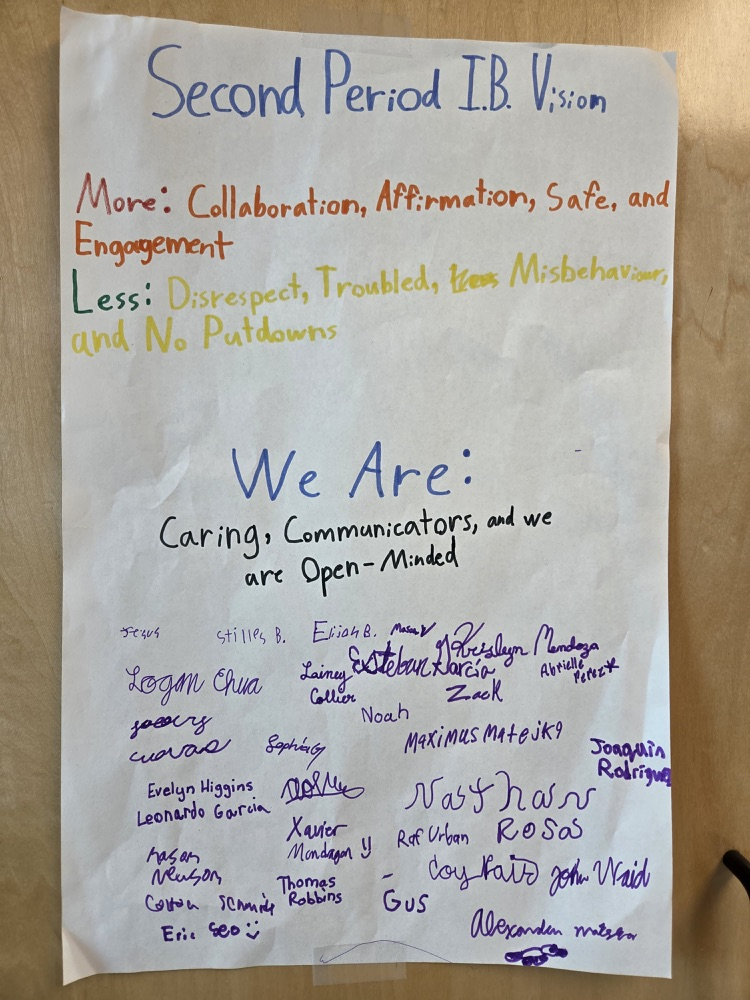 Second Period I.B. Vision
More: Collaboration, Affirmation, Safe, and
Engagement
Less: Disrespect, Troubled, Misbehaviour,
and No Putdowns
We Are:
Caring, Communicators, and we
are Open-Minded
Jesus
Stilles B.
Elijah B.
Mason V
Krislyn Mendoza
Esteban Garcia
Logan Chua
Lainey
Collier
Zack
Abrielle
Perez
Noah
cuevas
Sophia G
Maximus Matejka
Joaquin
Rodriguez
Evelyn Higgins
Leonardo Garcia
Nathan
Xavier
Mondagon y
Raf Urban
Rosas
Kasen
Newson
Coy Faid
John Waid
Colton Schmidt
Thomas
Robbins
Gus
Eric Seo :)
Alexander